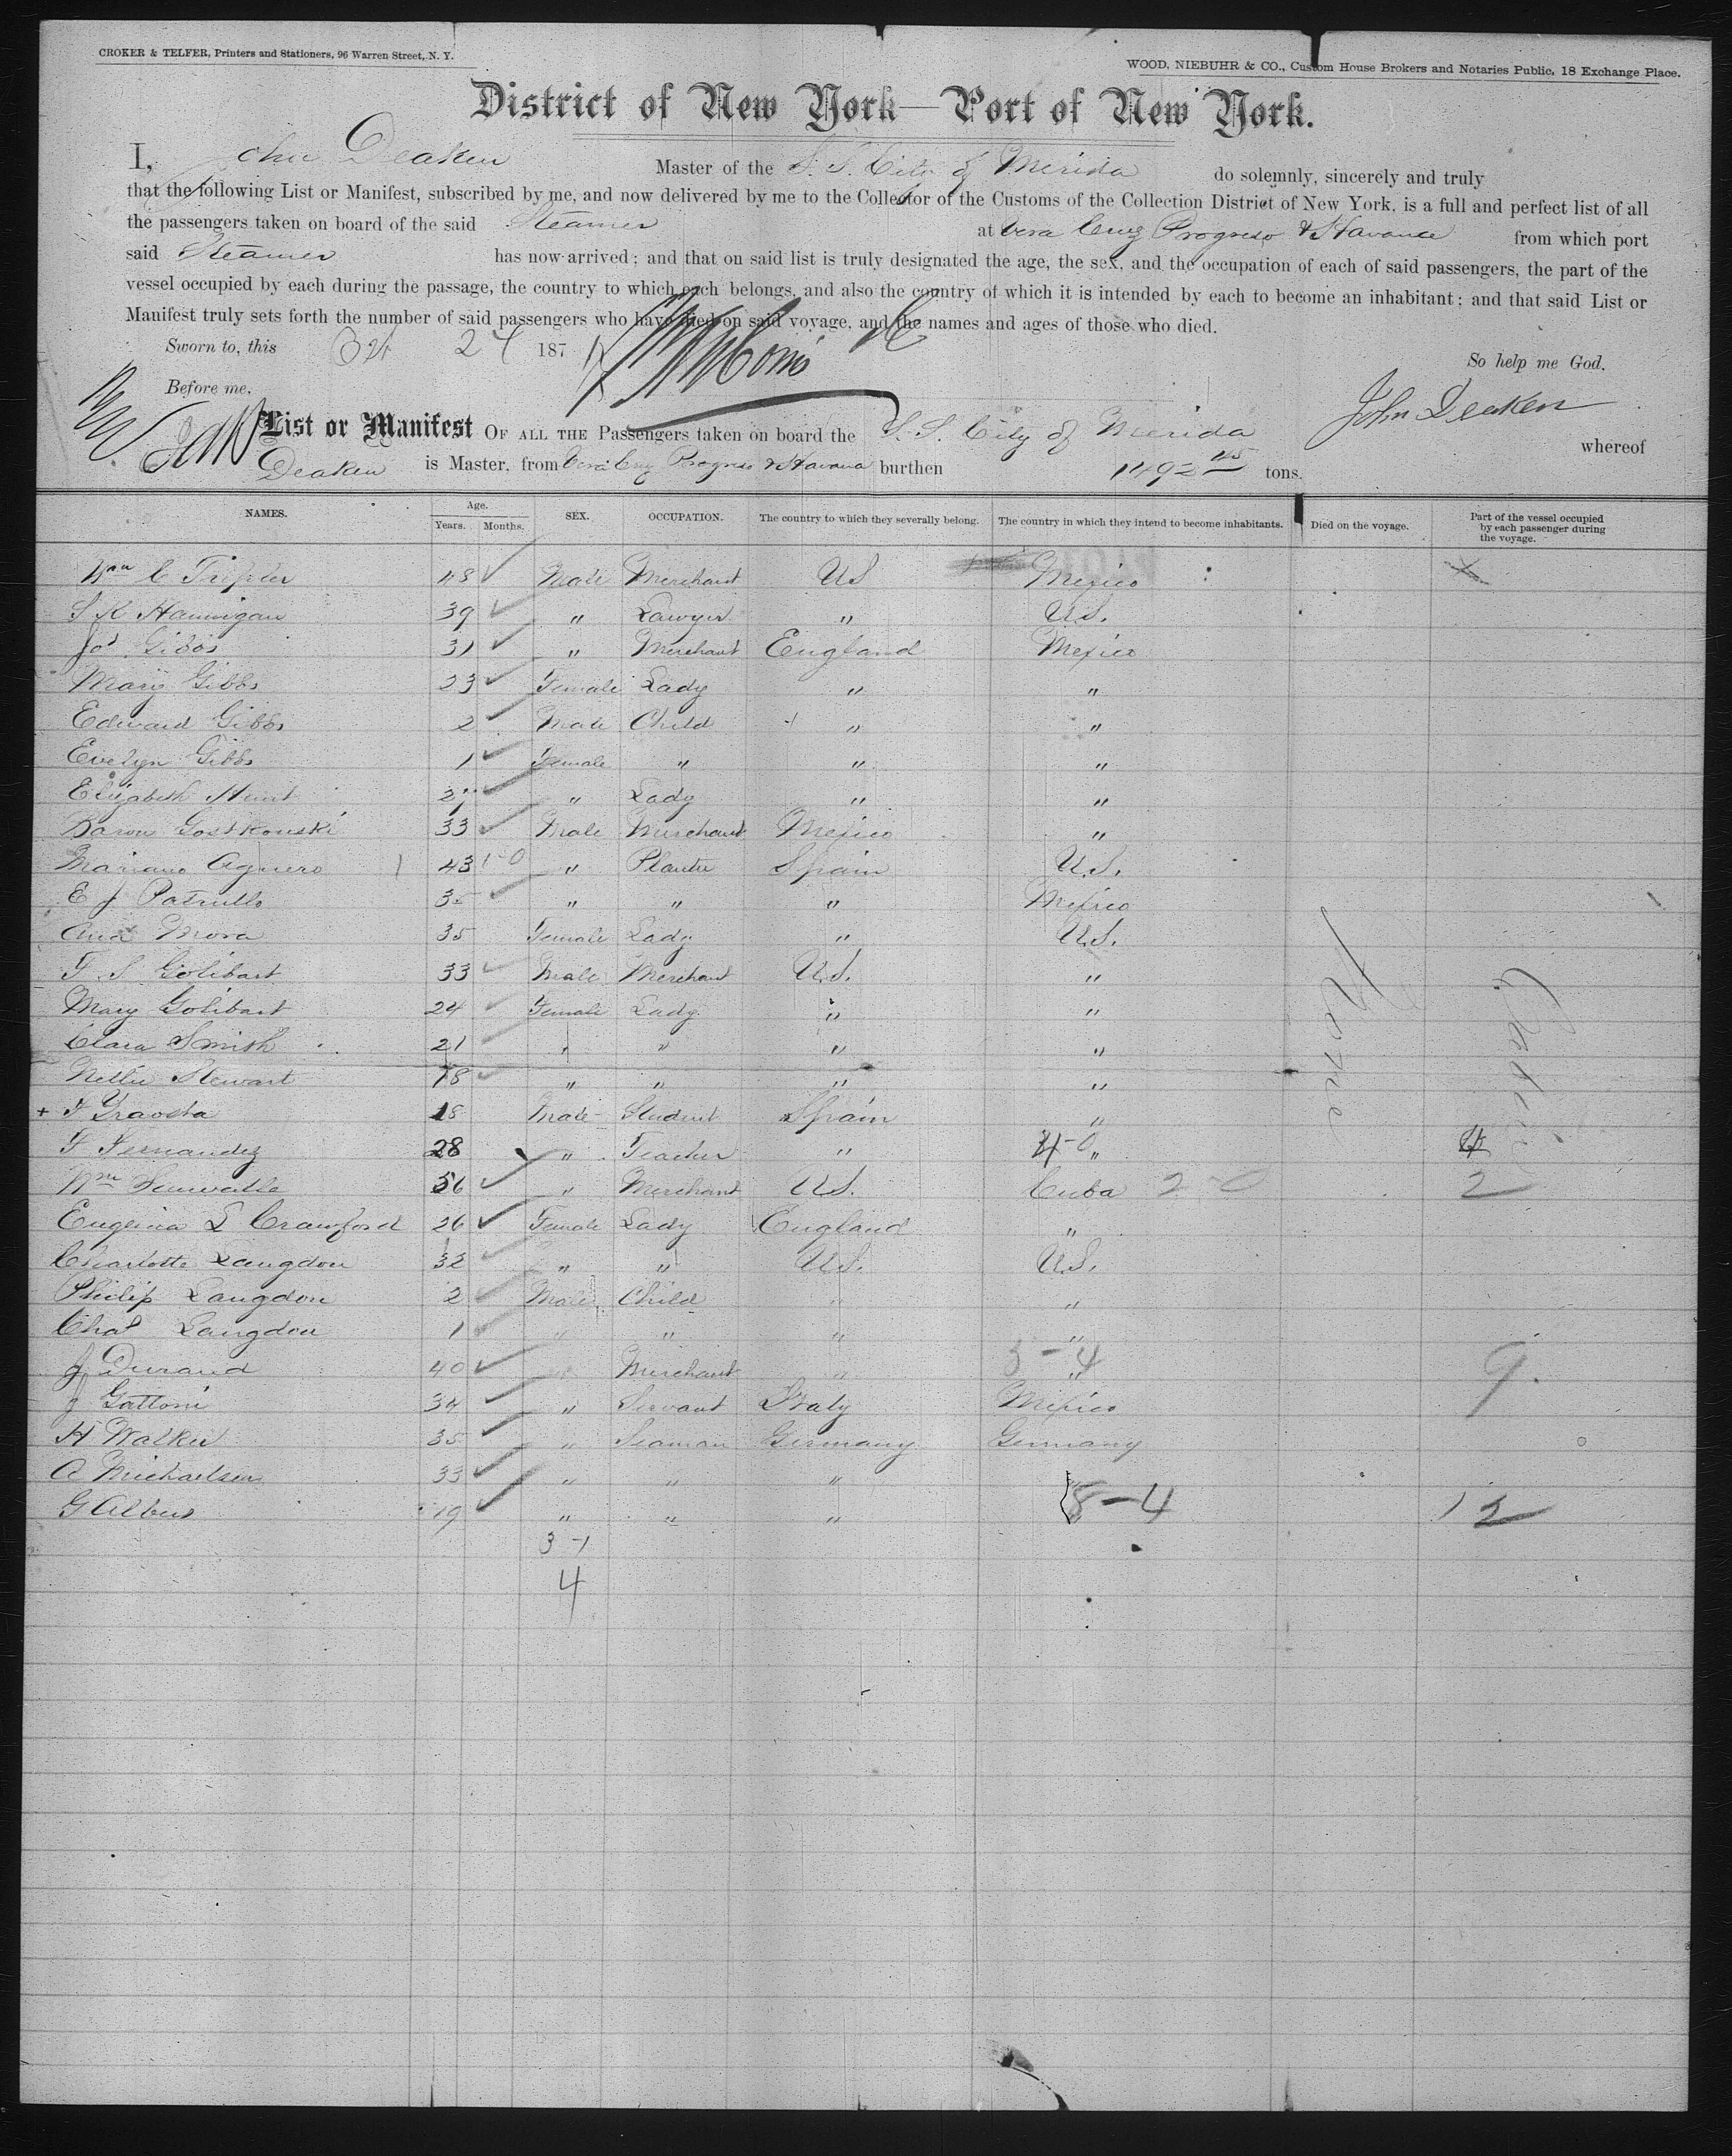 CROKER & TELFER, Printers and Stationers, 96 Warren Street, N. Y.
WOOD, NIEBUHR & CO., Custom House Brokers and Notaries Public, 18 Exchange Place.
District of New York—Port of New York.
I, John Deaken Master of the S. S. City of Merida do solemnly, sincerely and truly
that the following List or Manifest, subscribed by me, and now delivered by me to the Collector of the Customs of the Collection District of New York, is a full and perfect list of all
the passengers taken on board of the said Steamer at Vera Cruz Progreso & Havana from which port
said Steamer has now arrived; and that on said list is truly designated the age, the sex, and the occupation of each of said passengers, the part of the
vessel occupied by each during the passage, the country to which each belongs, and also the country of which it is intended by each to become an inhabitant; and that said List or
Manifest truly sets forth the number of said passengers who have died on said voyage, and the names and ages of those who died.
Sworn to, this Oct 24 187
So help me God.
Before me,
John Deaken
List or Manifest OF ALL THE Passengers taken on board the S. S. City of Merida whereof
Deaken is Master, from Vera Cruz Progreso & Havana burthen 1492 45 tons.
NAMES. Age. Years. Months. SEX. OCCUPATION. The country to which they severally belong. The country in which they intend to become inhabitants. Died on the voyage. Part of the vessel occupied by each passenger during the voyage.
Wm C 48 Male Merchant US Mexico
S K Hannigan 39 " Lawyer " U.S.
Jos Gibbs 31 " Merchant England Mexico
Mary Gibbs 23 Female Lady " "
Edward Gibbs 2 Male Child " "
Evelyn Gibbs 1 Female " " "
Elizabeth Hunt " Lady " "
Baron Gostkowski 33 Male Merchant Mexico "
Mariano Aguero 43 1-0 " Planter Spain U.S.
E J Patrullo 35 " " " Mexico
Ana Mora 35 Female Lady " U.S.
F S Golibart 33 Male Merchant U.S. "
Mary Golibart 24 Female Lady " "
Clara Smith 21 " " " "
Nellie Stewart 18 " " " "
+ F 18 Male Student Spain "
F Fernandez 28 " Teacher " 4-0 " 4
Wm 56 " Merchant U.S. Cuba 2-0 2
Eugenia L Crawford 26 Female Lady England "
Charlotte Langdon 32 " " U.S. U.S.
Philip Langdon 2 Male Child " "
Chas Langdon 1 " " " "
J Durand 40 " Merchant " 3-4 " 9.
J Gattoni 34 " Servant Italy Mexico
H Walker 35 " Seaman Germany Germany
A Michaelsen 33 " " "
G Albers 19 " " " 8-4 12
None
Cabin
3-1
4